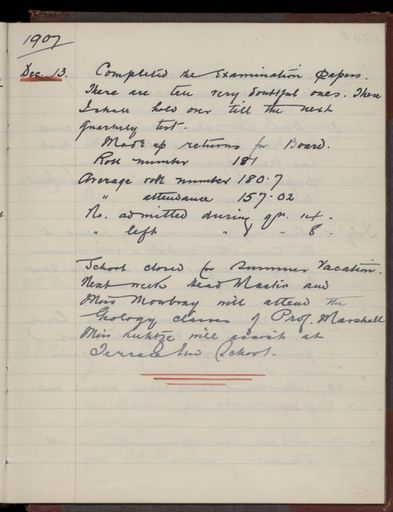 1907
Dec. 13. Completed the Examination Papers.
There are ten very doubtful ones. These
I shall hold over till the next
quarterly test.
Made up returns for Board.
Roll number 181
Average roll number 180.7
" attendance 157.02
No. admitted during qr. 14.
" left " " 8.
School closed for Summer Vacation.
Next week Head Master and
Miss Mowbray will attend the
Geology classes of Prof. Marshall
Miss will assist at
Terrace End School.